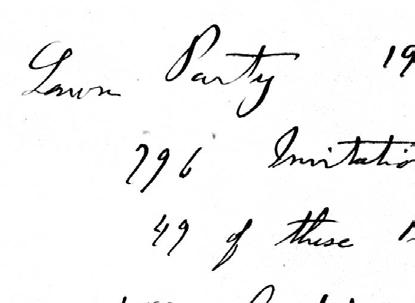 Lawn Party 19
796 Invitatio
49 of these